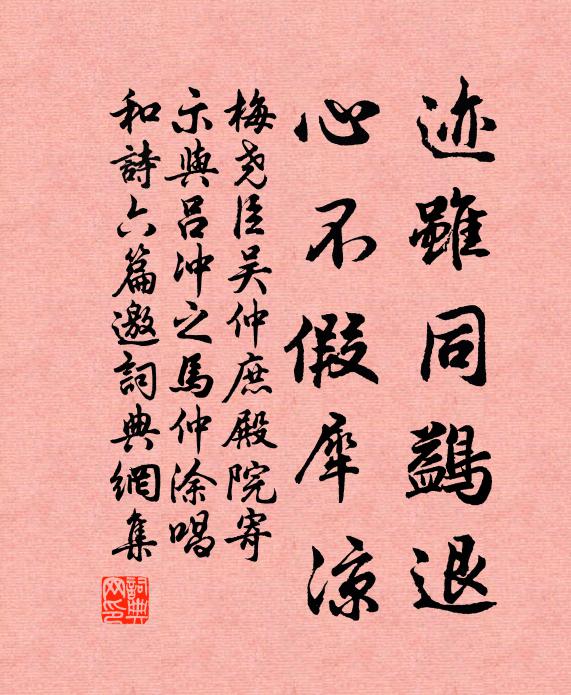 迹雖同鷁退
心不假犀涼
梅尧臣吴仲庶殿院寄
示與吕冲之馬仲涂唱
和詩六篇邀詞典網集
詞典网印